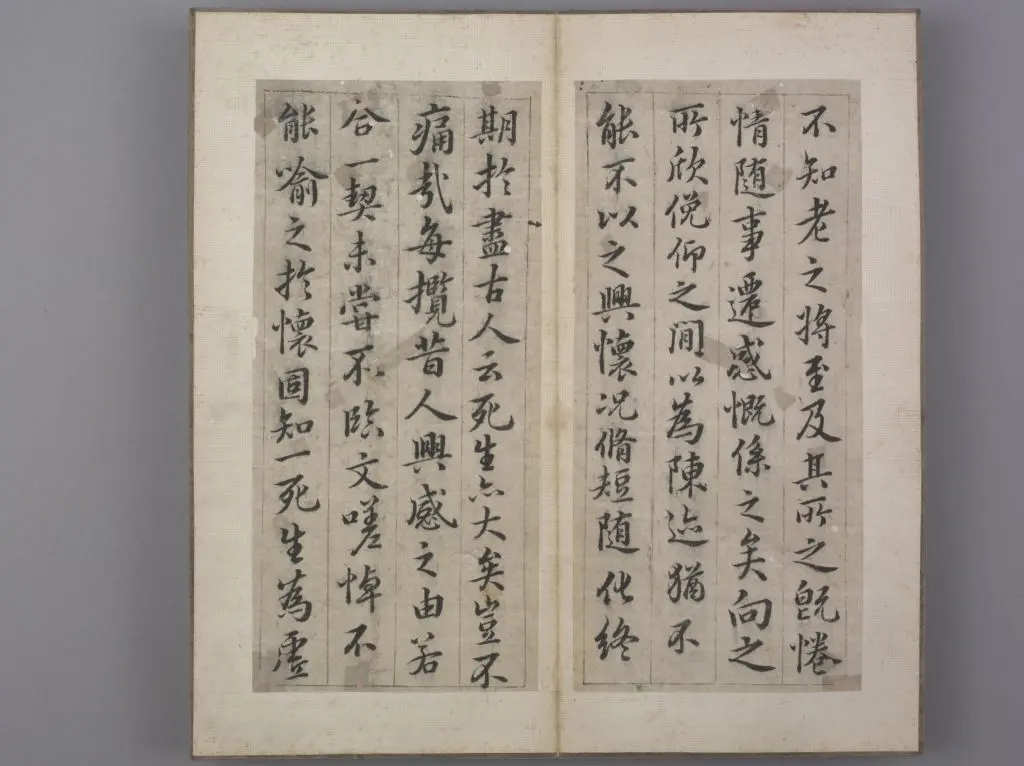 不知老之將至及其所之旣惓
情随事遷感慨係之矣向之
所欣俛仰之間以為陳迹猶不
能不以之興懷況脩短随化終
期於盡古人云死生亦大矣豈不
痛哉每攬昔人興感之由若
合一契未嘗不臨文嗟悼不
能喻之於懷固知一死生為虛